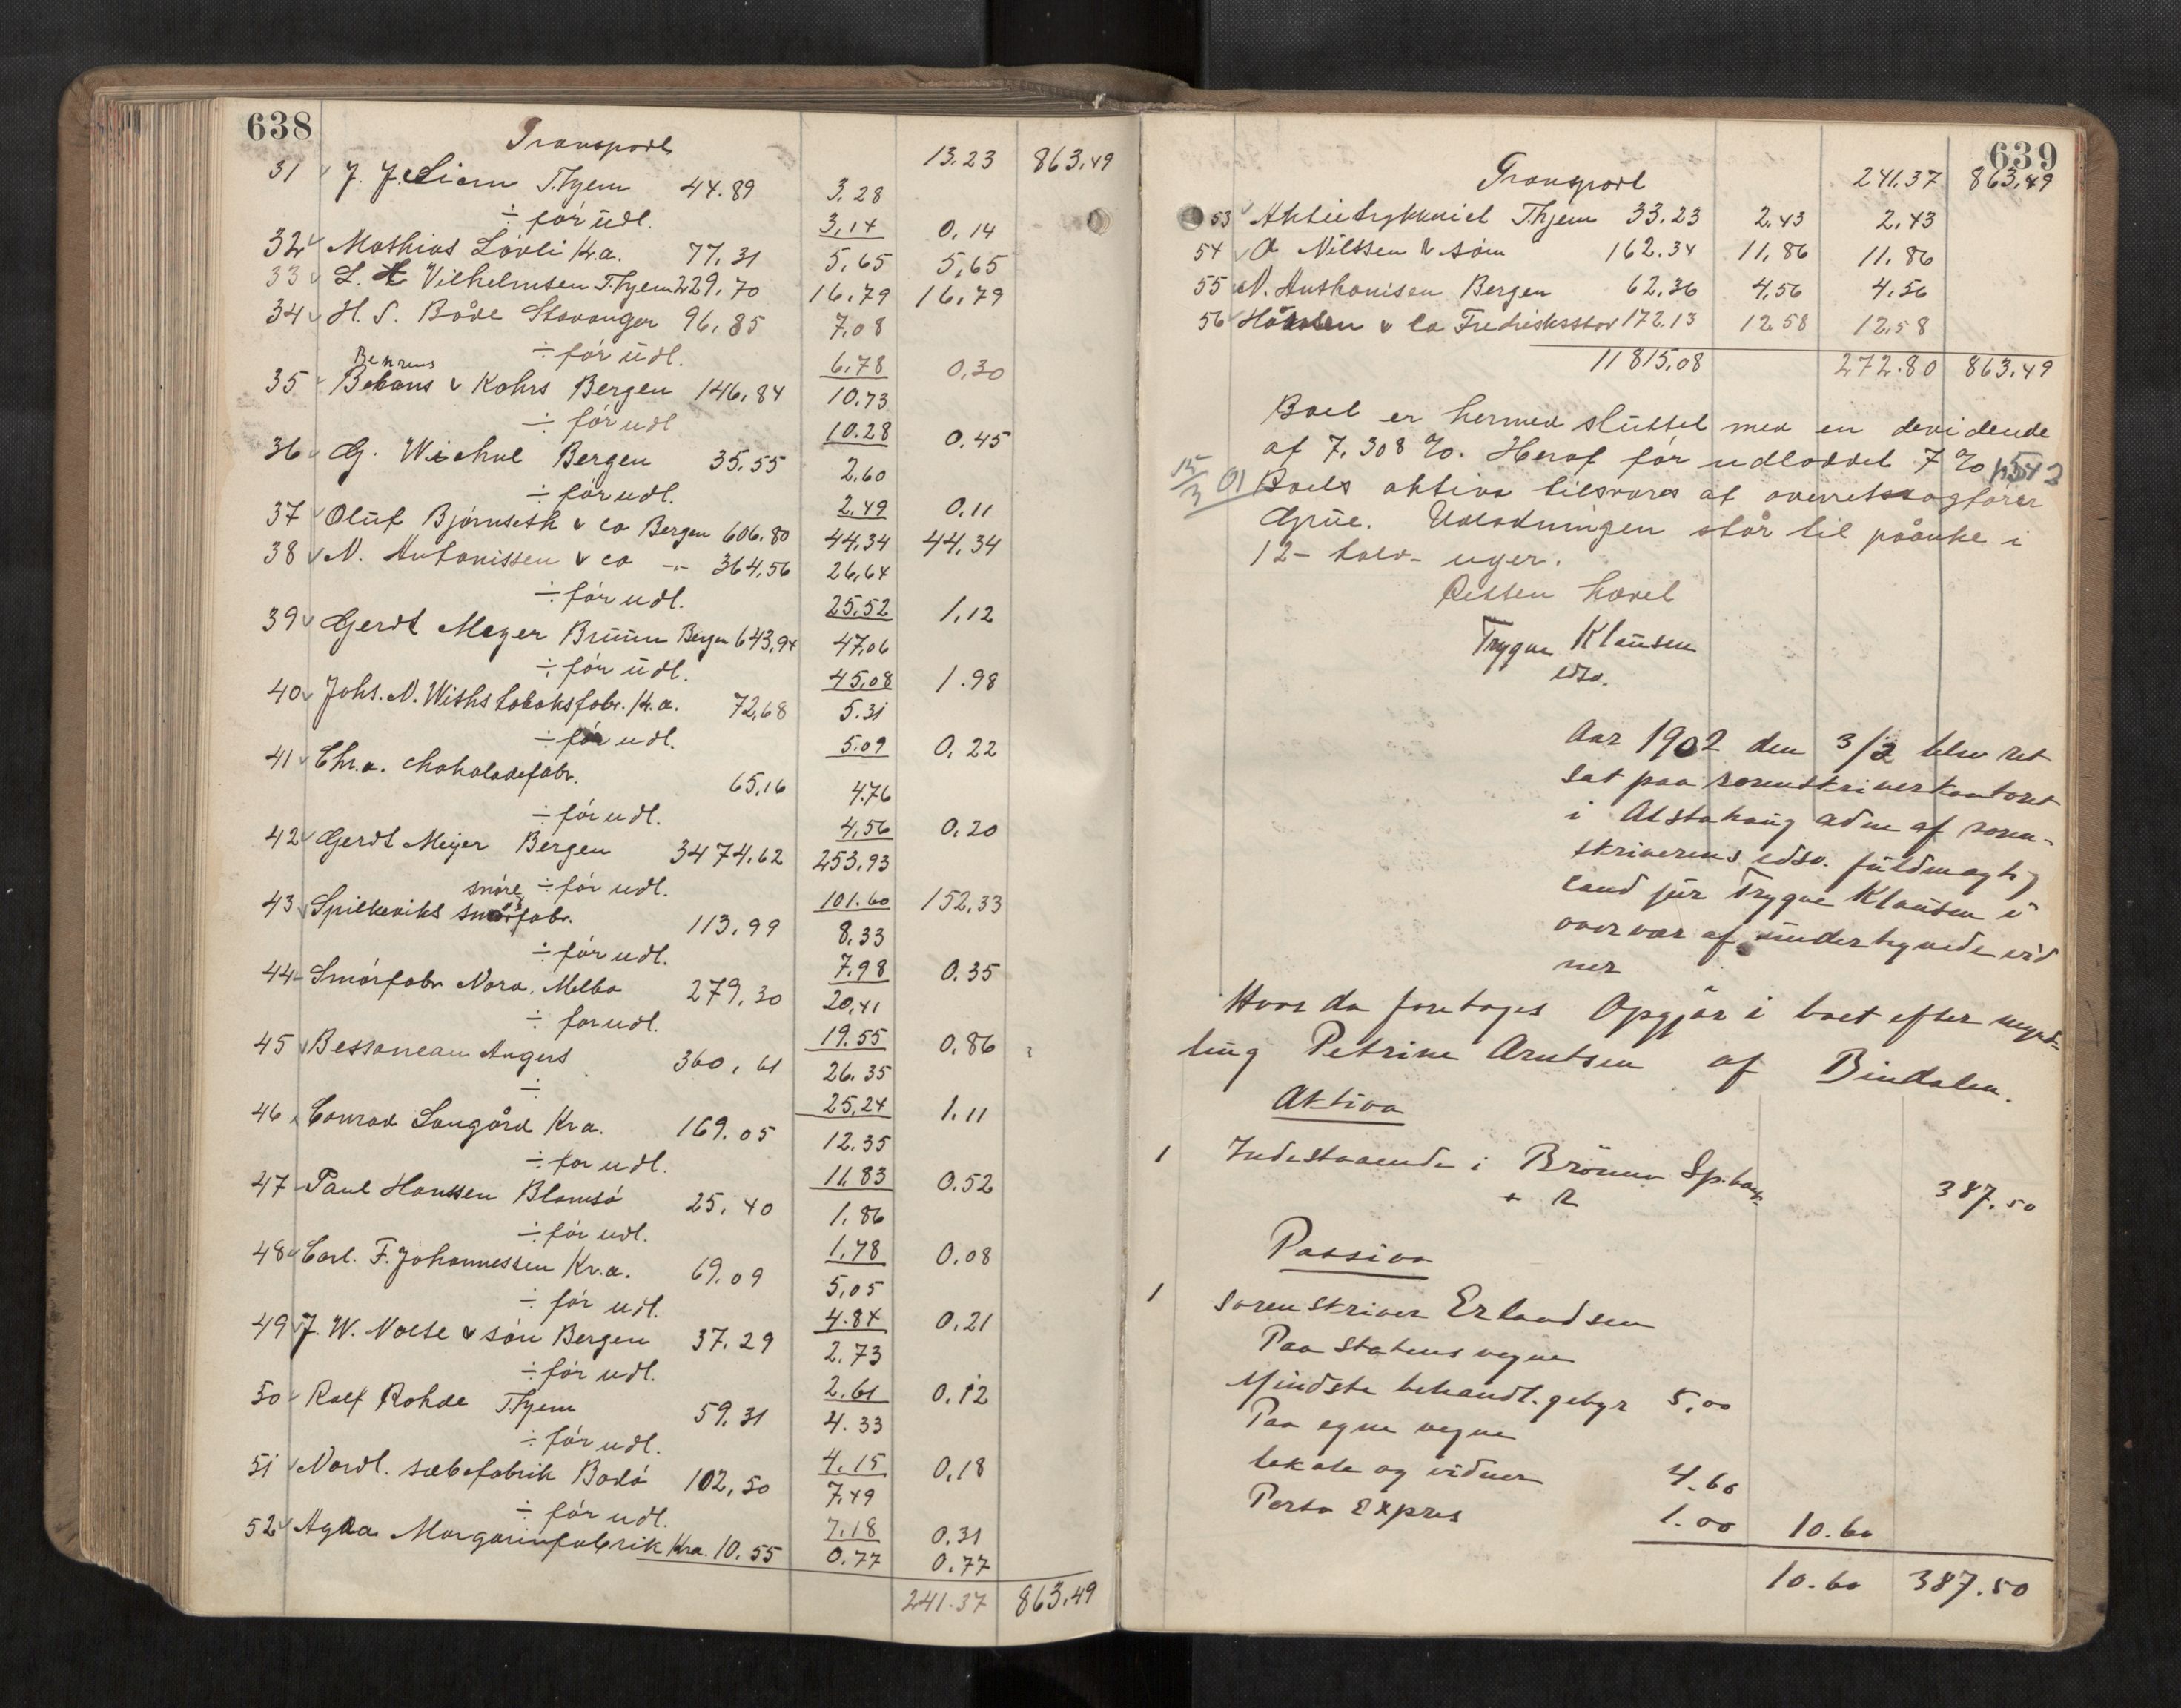 638
Transport 13.23 863.49
31 J. J. Lian T.hjem 44.89 3,28
÷ för udl. 3,14 0,14
32 Mathias Lövli Kr.a. 77,31 5,65 5,65
33 L. Vilhelmsen T.hjem 229,70 16,79 16,79
34 H. S. Både Stavanger 96,85 7,08
÷ för udl. 6,78 0,30
Behrens
35 & Kohrs Bergen 146,84 10.73
÷ för udl 10.28 0.45
36 G. Bergen 35,55 2,60
÷ för udl. 2,49 0,11
37 Oluf Björnseth & co Bergen 606.80 44,34 44,34
38 N. Antonissen & co -"- 364,56 26,64
÷ för udl. 25,52 1,12
39 Gerdt Meyer Bruun Bergen 643,94 47,06
÷ för udl. 45,08 1.98
40 Johs. N. Withs tobaksfabr. Kr.a. 72,68 5.31
÷ för udl. 5.09 0,22
41 Chr.a. chokoladefabr. 65,16 4.76
÷ för udl. 4,56 0,20
42 Gerdt Meijer Bergen 3474,62 253,93
÷ för udl. 101.60 152,33
snöre
43 Spilkeviks fabr. 113,99 8,33
÷ för udl. 7,98 0.35
44 Smörfabr Nora, Melbo 279,30 20,41
÷ for udl. 19.55 0,86
45 Bessoneau Angers 360,61 26.35
÷ 25,24 1.11
46 Conrad Langård Kra. 169.05 12.35
÷ for udl. 11,83 0.52
47 Paul Hanssen Blomsö 25,40 1,86
÷ för udl. 1,78 0,08
48 Carl. F. Johannessen Kr.a. 69.09 5,05
÷ för udl. 4.84 0,21
49 J. W. Nolte & sön Bergen 37.29 2.73
÷ för udl. 2,61 0,12
50 Rolf Rohde T.hjem 59.31 4.33
÷ för udl. 4,15 0,18
51 Nordl. sæbefabrik Bodö 102,50 7,49
÷ för udl. 7.18 0.31
52 Agra Margarinfabrik Kra. 10.55 0.77 0.77
241.37 863.49
639
Transport 241.37 863,49
53 Aktietrykkeriet T.hjem 33.23 2,43 2.43
54 O Nilssen & sön 162.34 11,86 11.86
55 N. Anthonisen Bergen 62,36 4,56 4.56
56 & Co Fredriksstad 172.13 12.58 12,58
11815,08 272.80 863,49
Boet er hermed sluttet med en devidende
af 7,308 %. Heraf för udloddet 7 %
15/3 01 Boets aktiva tilsvares af overretssagförer
Grüe. Udlodningen står til påanke i
12 - tolv - uger.
Retten hævet
Trygve Klausen
edsv.
Aar 1902 den 3/2 blev ret
sat paa sorenskriverkontoret
i Alstahaug adm af soren-
skriverens edsv. fuldmægtig
cand jur Trygve Klausen i
overvær af undertegnede vid
ner
Hvor da foretages Opgjör i boet efter mynd-
ling Petrine Arntsen af Bindalen.
Aktiva
1 Indestaaende i Brönnö Sp.bank 387.50
+ R
Passiva
1 Sorenskriver Erlandsen
Paa Statens vegne
Mindste behandl. gebyr 5,00
Paa egne vegne
lokale og vidner 4.60
Porto Expres 1.00 10.60
10.60 387.50